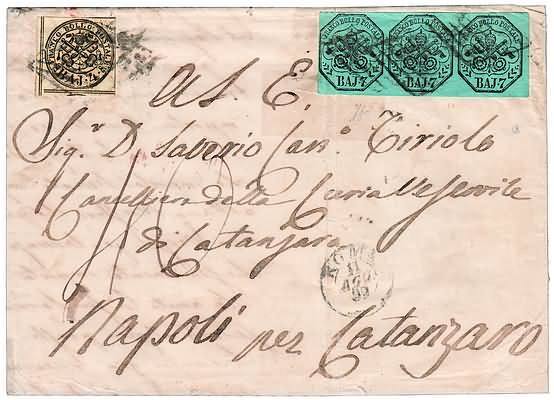 FRANCO BOLLO POSTALE
BAJ:4
FRANCO BOLLO POSTALE
BAJ.7
FRANCO BOLLO POSTALE
BAJ.7
FRANCO BOLLO POSTALE
BAJ.7
A S. E.
Sig.r D. Saverio Can.o Tiriolo
Cancelliere della Curia Vescovile
di Catanzaro
ROMA
11
Napoli per Catanzaro